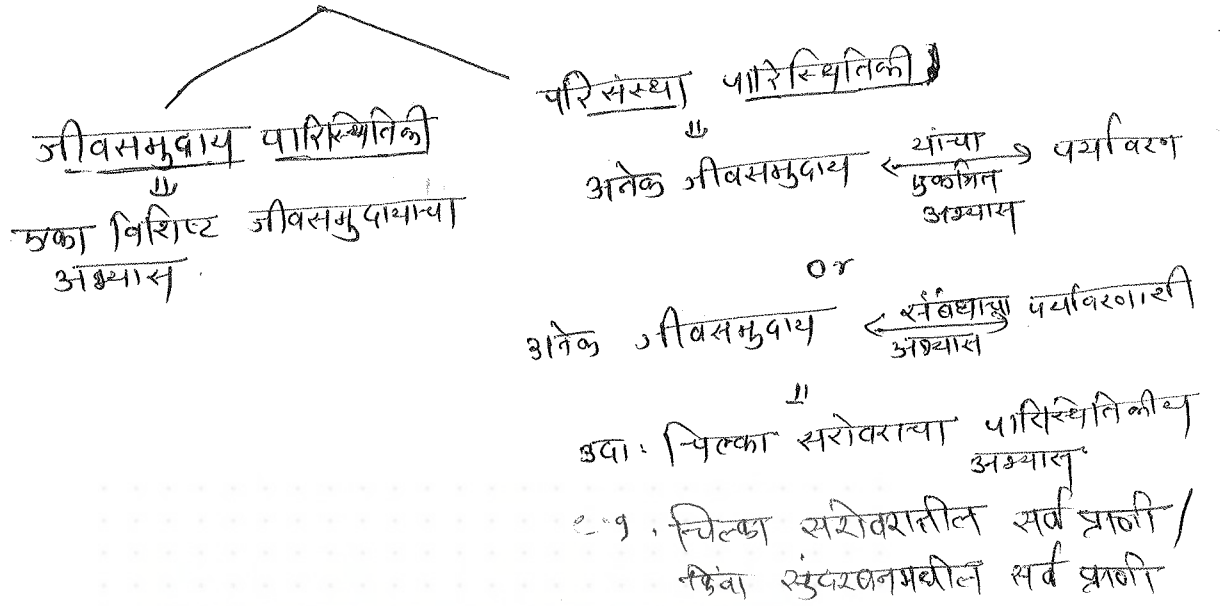 जीवसमुदाय पारिस्थितिकी
एका विशिष्ट जीवसमुदायाचा
अभ्यास.
परिसंस्था पारिस्थितिकी
अनेक जीवसमुदाय यांचा एकत्रित अभ्यास पर्यावरण
Or
अनेक जीवसमुदाय संबंधाचा अभ्यास पर्यावरणाशी
उदा: चिल्का सरोवराचा पारिस्थितिकीय
अभ्यास
e.g. चिल्का सरोवरातील सर्व प्राणी /
किंवा सुंदरबनमधील सर्व प्राणी